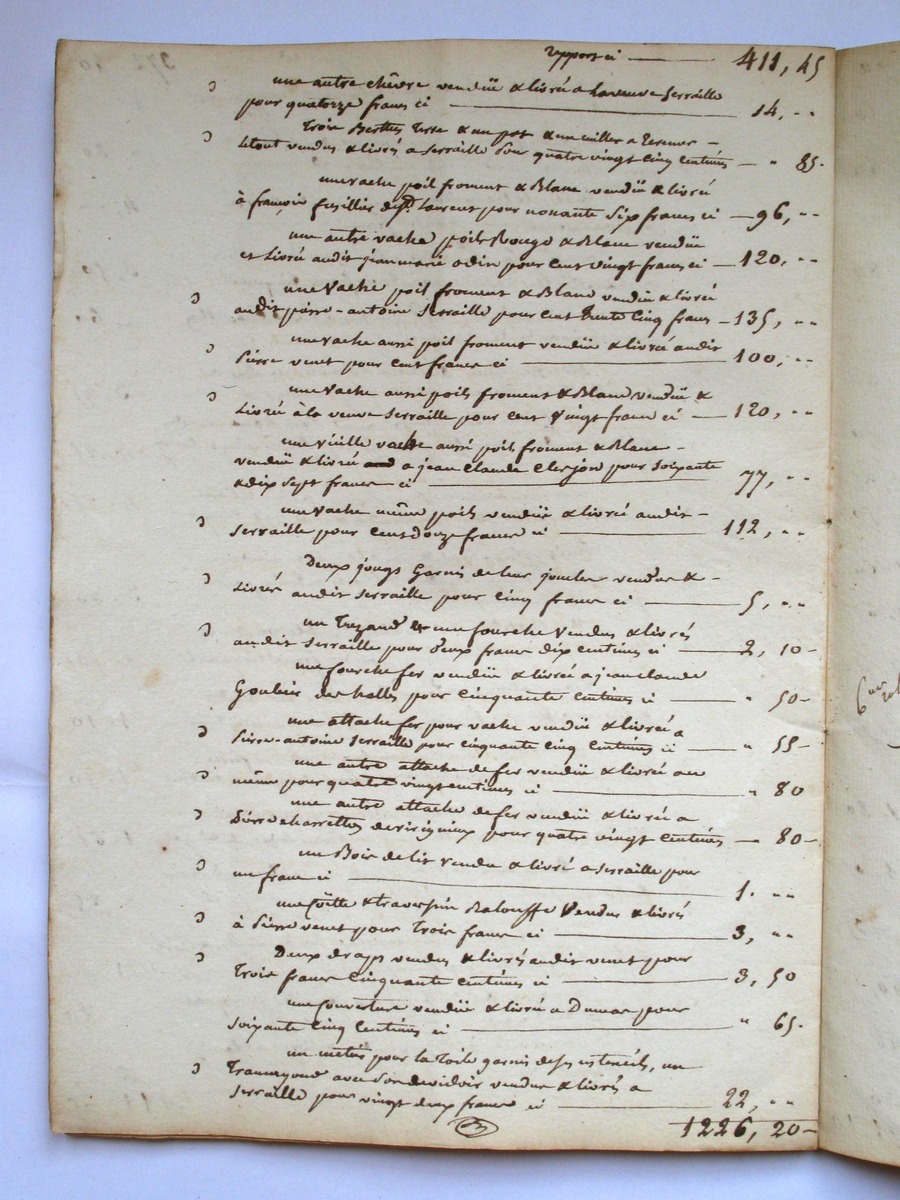 report ci — 411, 45
une autre chèvre vendüe & livrée a la veuve Serraille
pour quatorze francs ci — 14, ..
Trois & un pot & une cuiller a
le tout vendus & livrés a Serraille pour quatre vingt cinq centimes — " 85-
une vache poil froment & Blanc vendüe & livrée
à françois fusillier Laurent pour nonante Six francs ci — 96, ..
une autre vache poils Rouge & Blanc vendüe
et Livrée audit jean marie odin pour cent vingt francs ci — 120, ..
une Vache poil froment & Blanc vendüe & livrée
audit pierre-antoine Serraille pour cent trente cinq francs — 135, ..
une vache aussi poil froment vendüe & livrée audit
Pierre venet pour cent francs ci — 100, ..
une Vache aussi poils froment & Blanc vendüe &
Livrée à la veuve Serraille pour cent Vingt francs ci — 120, ..
une vieille vache aussi poil froment & Blanc -
vendüe & livrée a jean Claude Clerjon pour Soixante
& dix Sept francs ci — 77, ..
une vache même poils vendüe & livrée audit -
Serraille pour cent douze francs ci — 112, ..
Deux jougs Garnis de leur joucles vendus & -
Livrés audit Serraille pour Cinq francs ci — 5, ..
un & une fourche Vendus & livrés
audit Serraille pour deux francs dix centimes ci — 2, 10-
une fourche fer vendüe & livrée a jean claude
Goubier des halles pour Cinquante Centimes ci — " 50-
une attache fer pour vache vendüe & livrée a
Pierre-antoine Serraille pour cinquante cinq Centimes ci — " 55-
une autre attache de fer vendüe & livrée au
même pour quatre vingt centimes ci — " 80
une autre attache de fer vendüe & livrée a
Pierre charretton de pour quatre vingt Centimes — 80-
un Bois de lit Vendu & livré a Serraille pour
un franc ci — 1. ..
une Coëtte & traversin Balouffe Vendus & livrés
à Pierre venet pour Trois francs ci — 3, ..
Deux draps vendus & livrés audit venet pour
Trois francs Cinquante Centimes ci — 3, 50
une Couverture vendüe & livrée a Dumas pour
Soixante Cinq Centimes ci — " 65-
un métier pour la Toile garni de ses ustencils, un
avec Son devidoir vendus & livrés a
Serraille pour vingt deux francs ci — 22, ..
1226, 20-